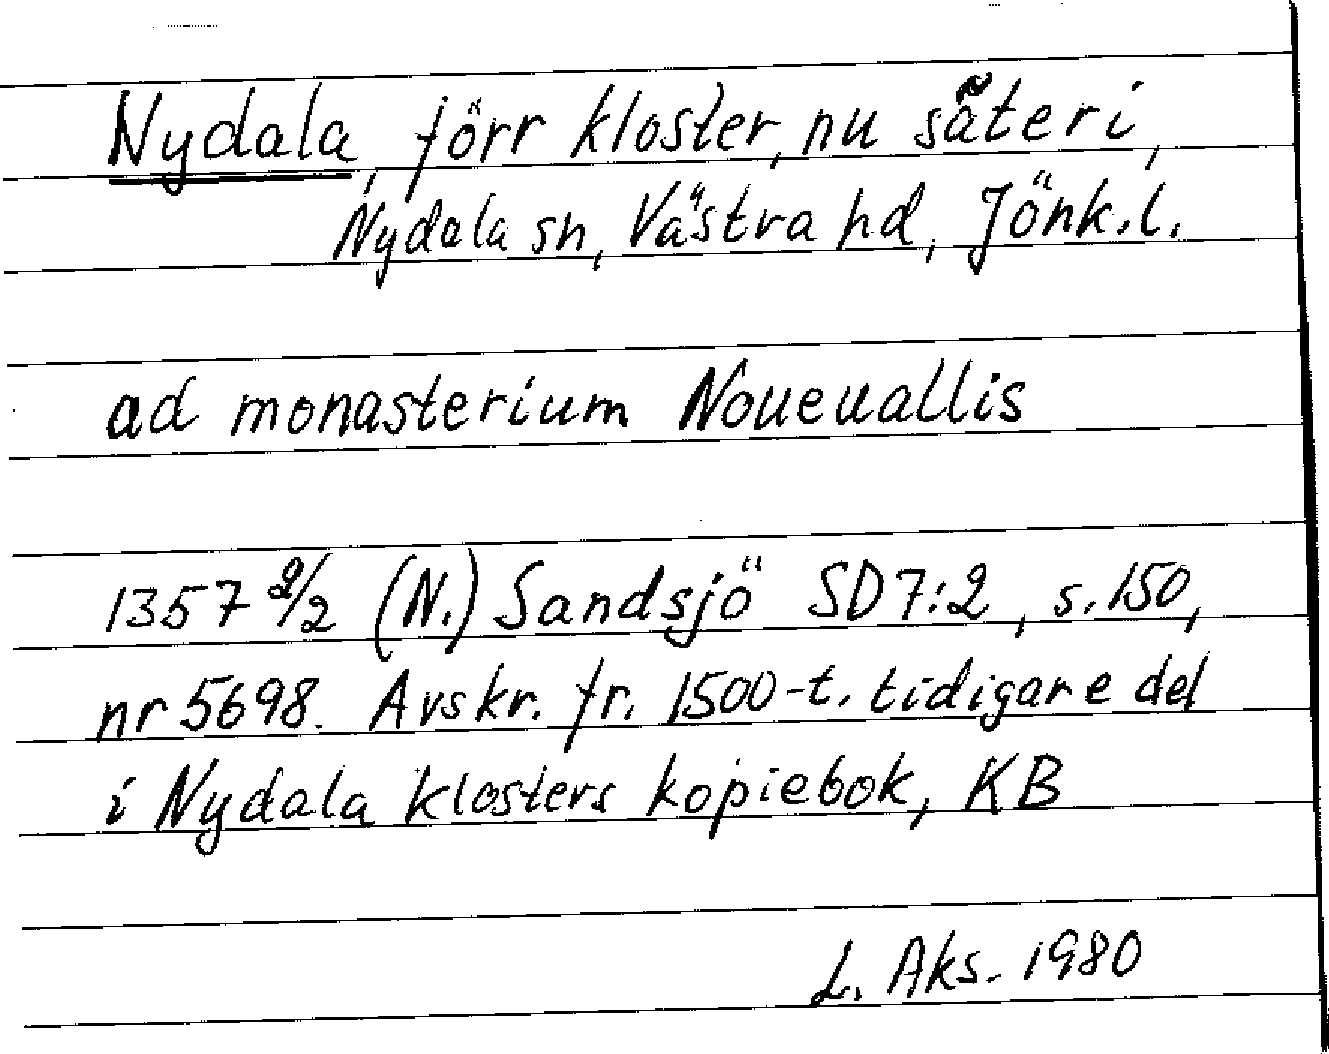 Nydala, förr kloster, nu säteri,
Nydala sn, Västra hd, Jönk.l.
ad monasterium Noueuallis
1357 2/2 (N.) Sandsjö SD 7:2, s. 150,
nr 5698. Avskr. fr. 1500-t. tidigare del
i Nydala klosters kopiebok, KB
L. Aks. 1980